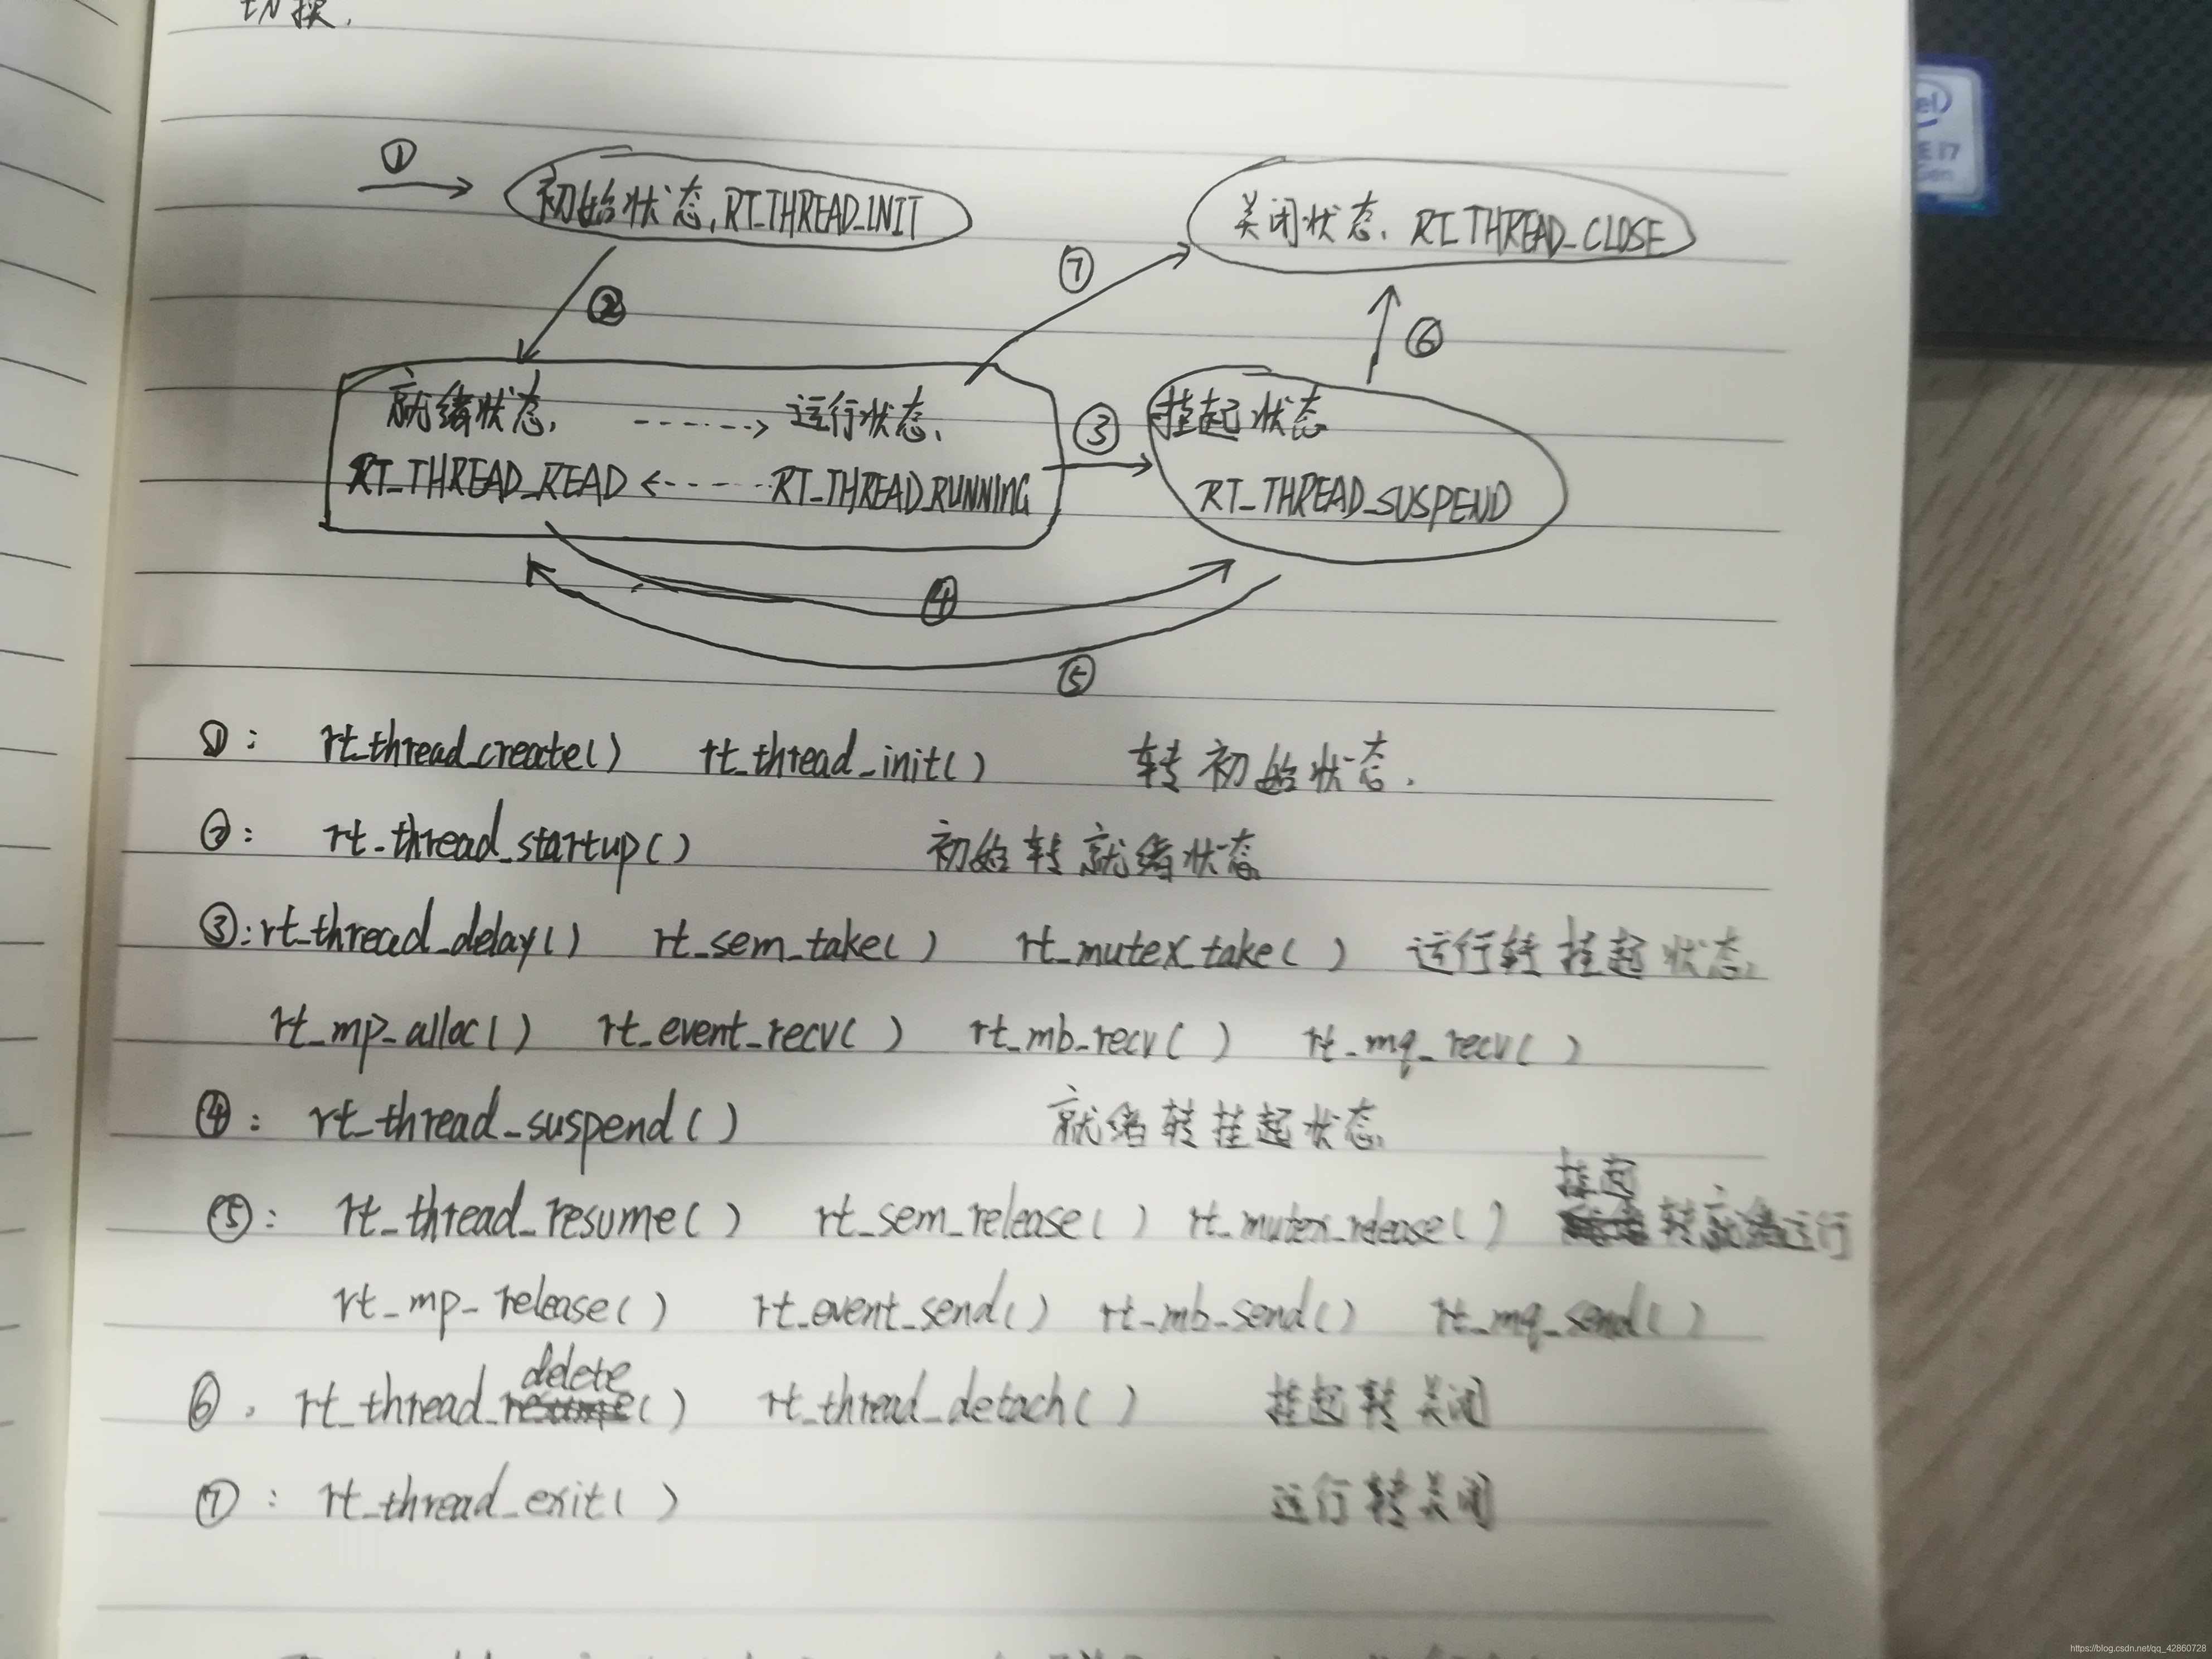 切换.
①
初始状态, RT_THREAD_INIT
关闭状态、RT_THREAD_CLOSE
⑦
②
⑥
就绪状态, 运行状态、
挂起状态
③
RT_THREAD_READ RT_THREAD_RUNNING
RT_THREAD_SUSPEND
④
⑤
①: rt_thread_create() rt_thread_init() 转初始状态.
②: rt_thread_startup() 初始转就绪状态
③: rt_thread_delay() rt_sem_take() rt_mutex_take() 运行转挂起状态.
rt_mp_alloc() rt_event_recv() rt_mb_recv() rt_mq_recv()
④: rt_thread_suspend() 就绪转挂起状态
⑤: rt_thread_resume() rt_sem_release() rt_mutex_release() 挂起转就绪运行
rt_mp_release() rt_event_send() rt_mb_send() rt_mq_send()
⑥. rt_thread_delete() rt_thread_detach() 挂起转关闭
⑦: rt_thread_exit() 运行转关闭
https://blog.csdn.net/qq_42860728